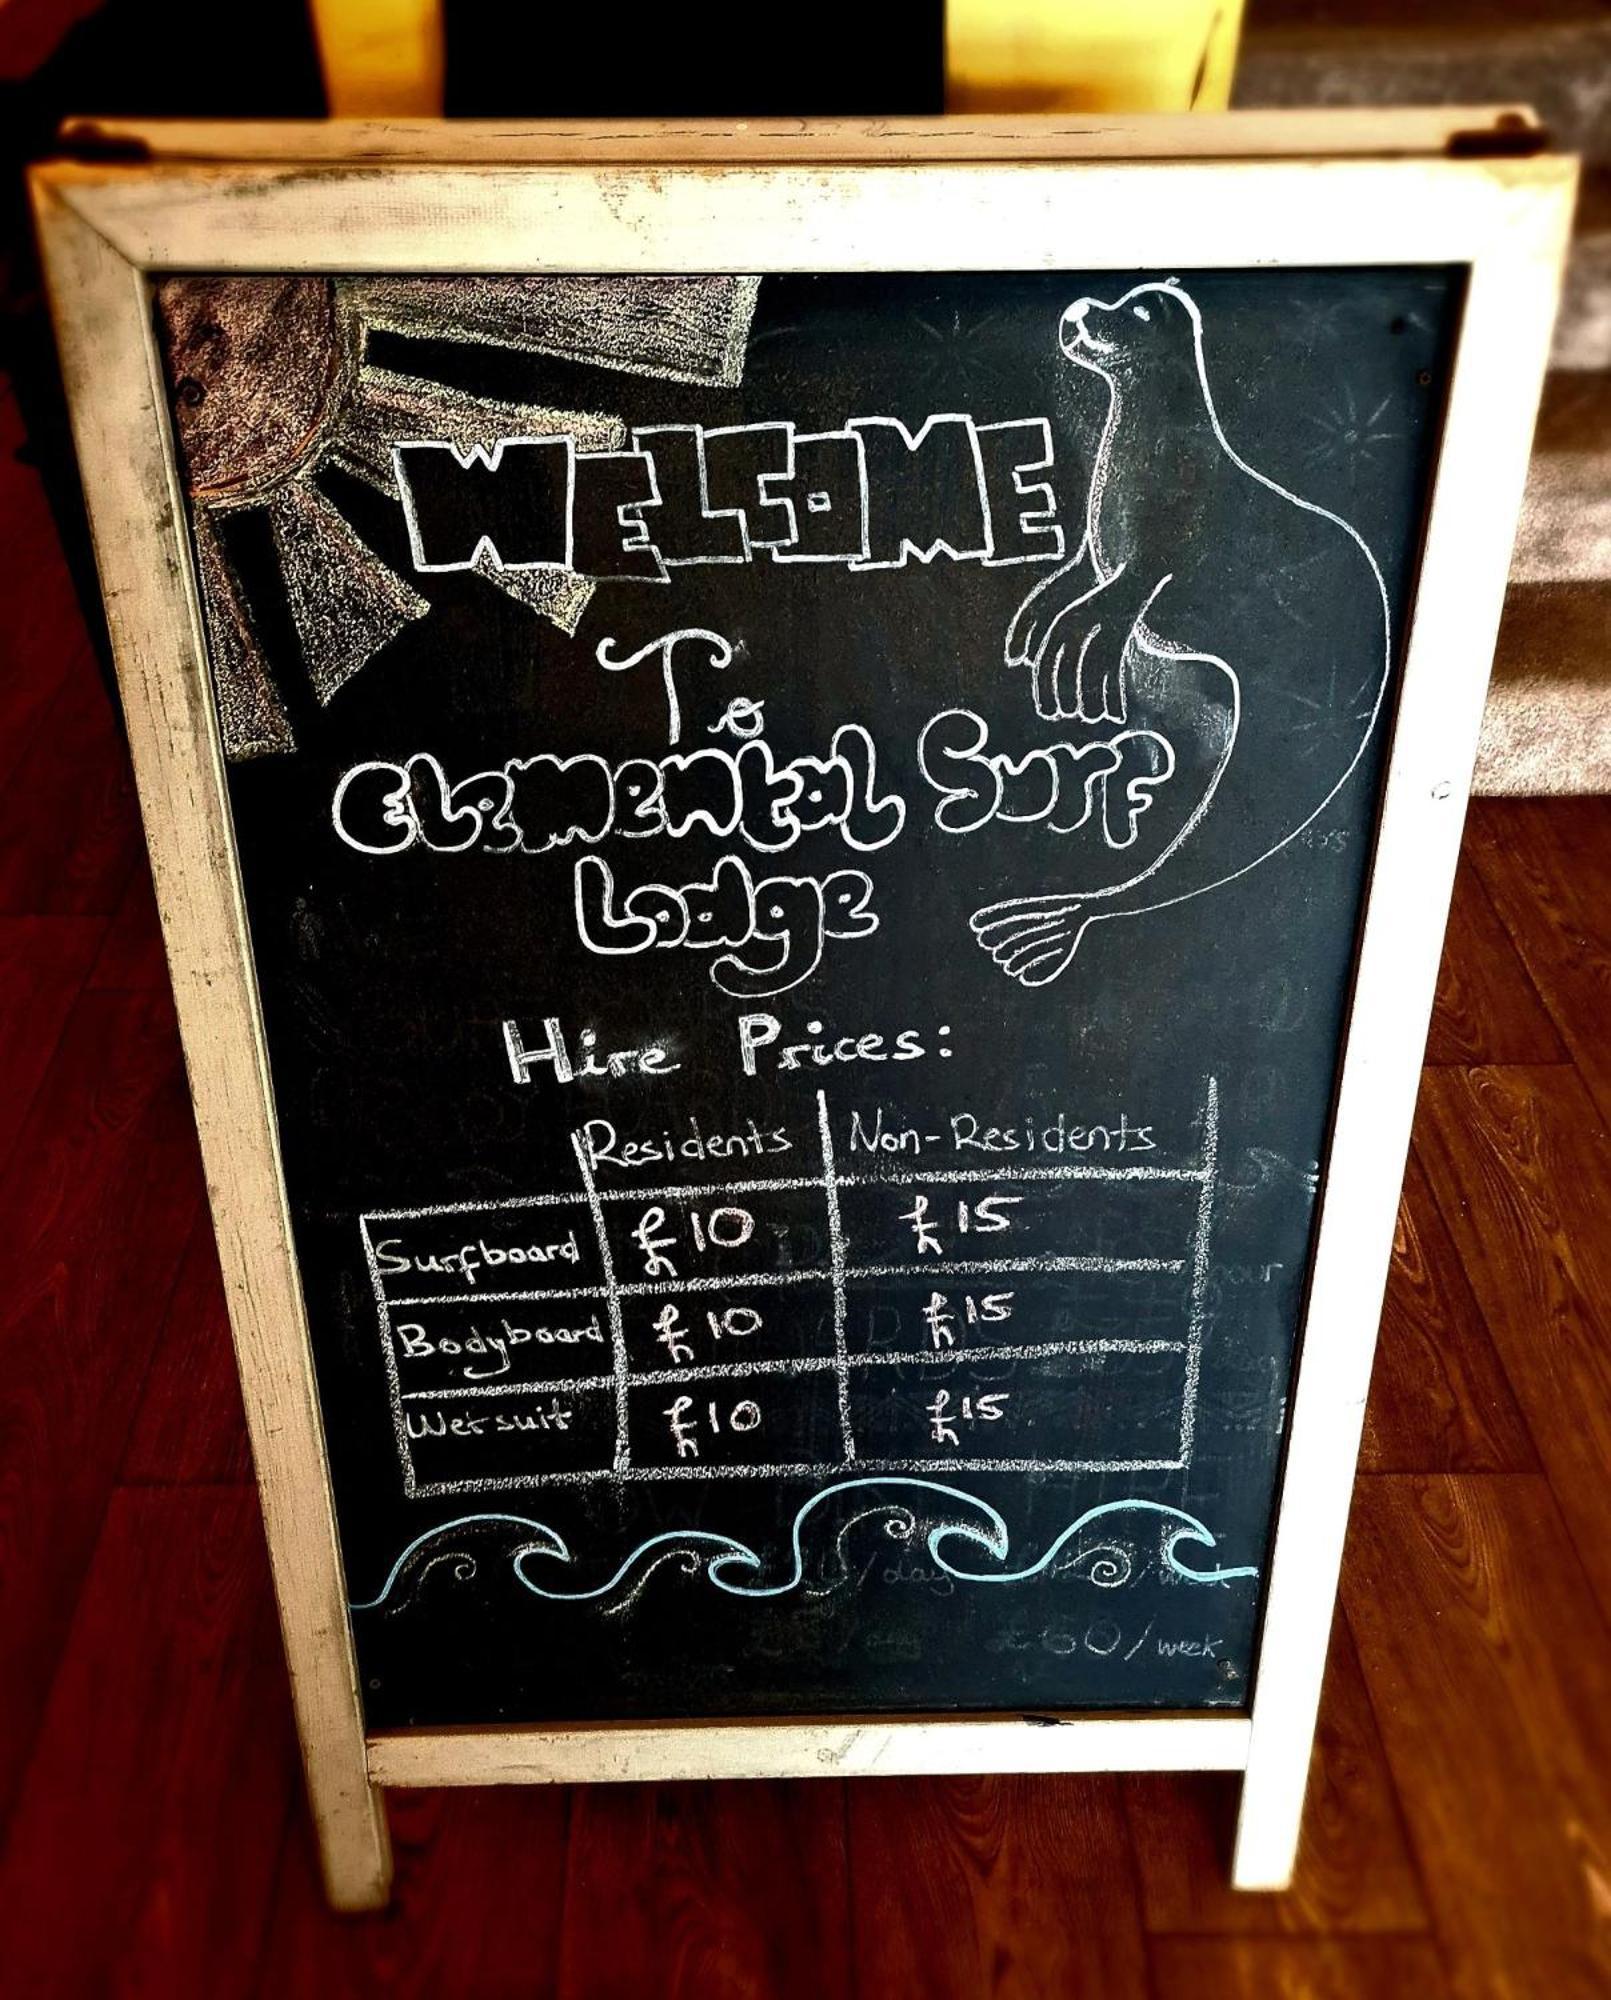 WELCOME
To
Elemental Surf
Lodge
Hire Prices:
Residents Non-Residents
Surfboard £10 £15
Bodyboard £10 £15
Wetsuit £10 £15
/day /week
/week